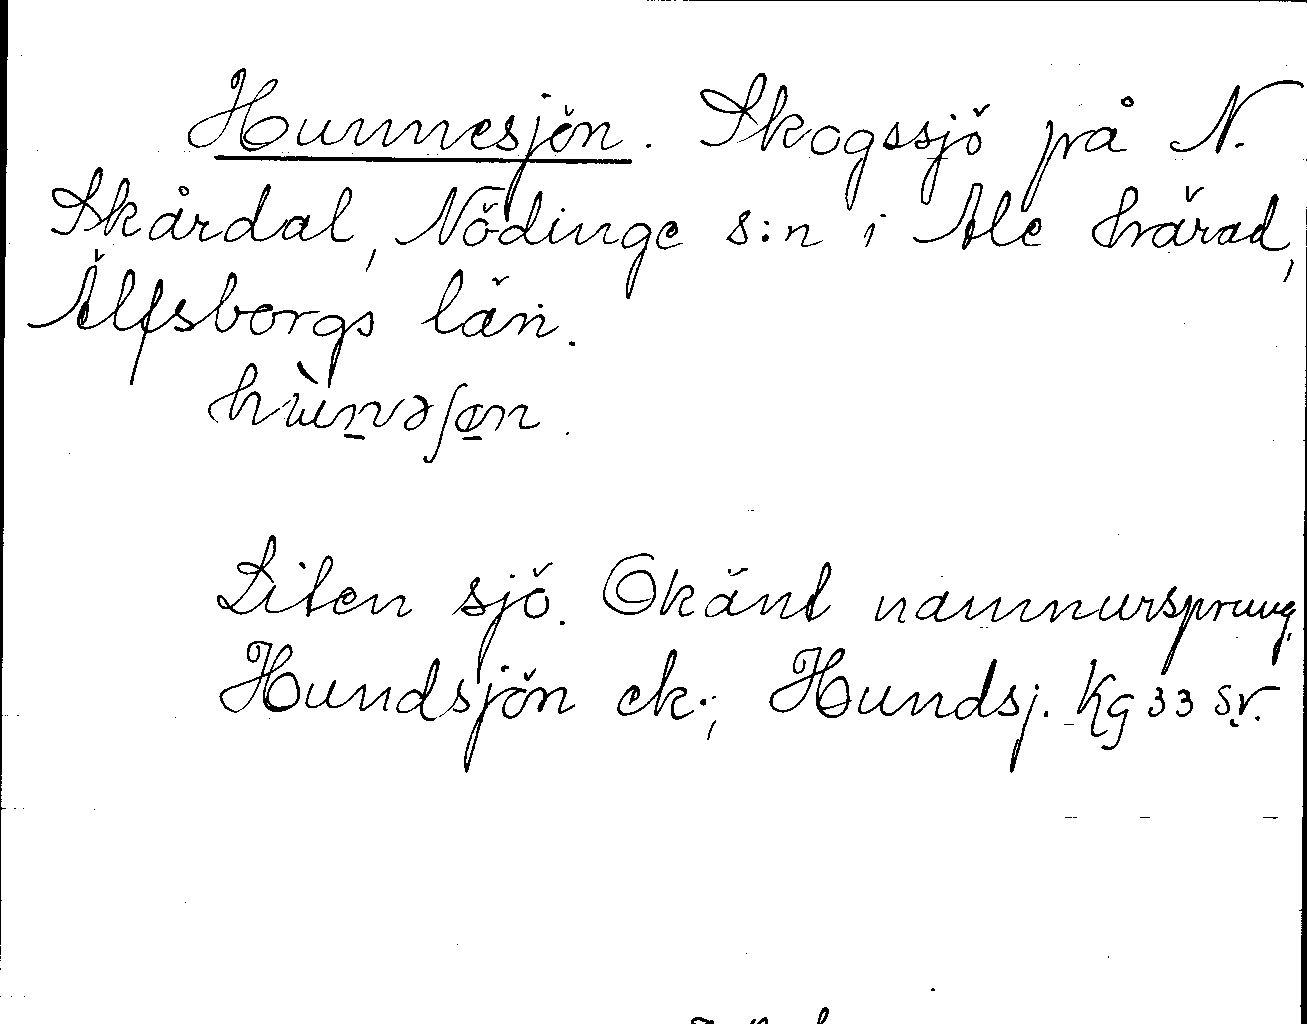 Hunnesjön. Skogssjö på N.
Skårdal, Nödinge s:n i Ale härad,
Älfsborgs län.
hùn̲əʃø̲n.
Liten sjö. Okänt namnursprung.
Hundsjön ek.; Hundsj. Kg 33 sv.